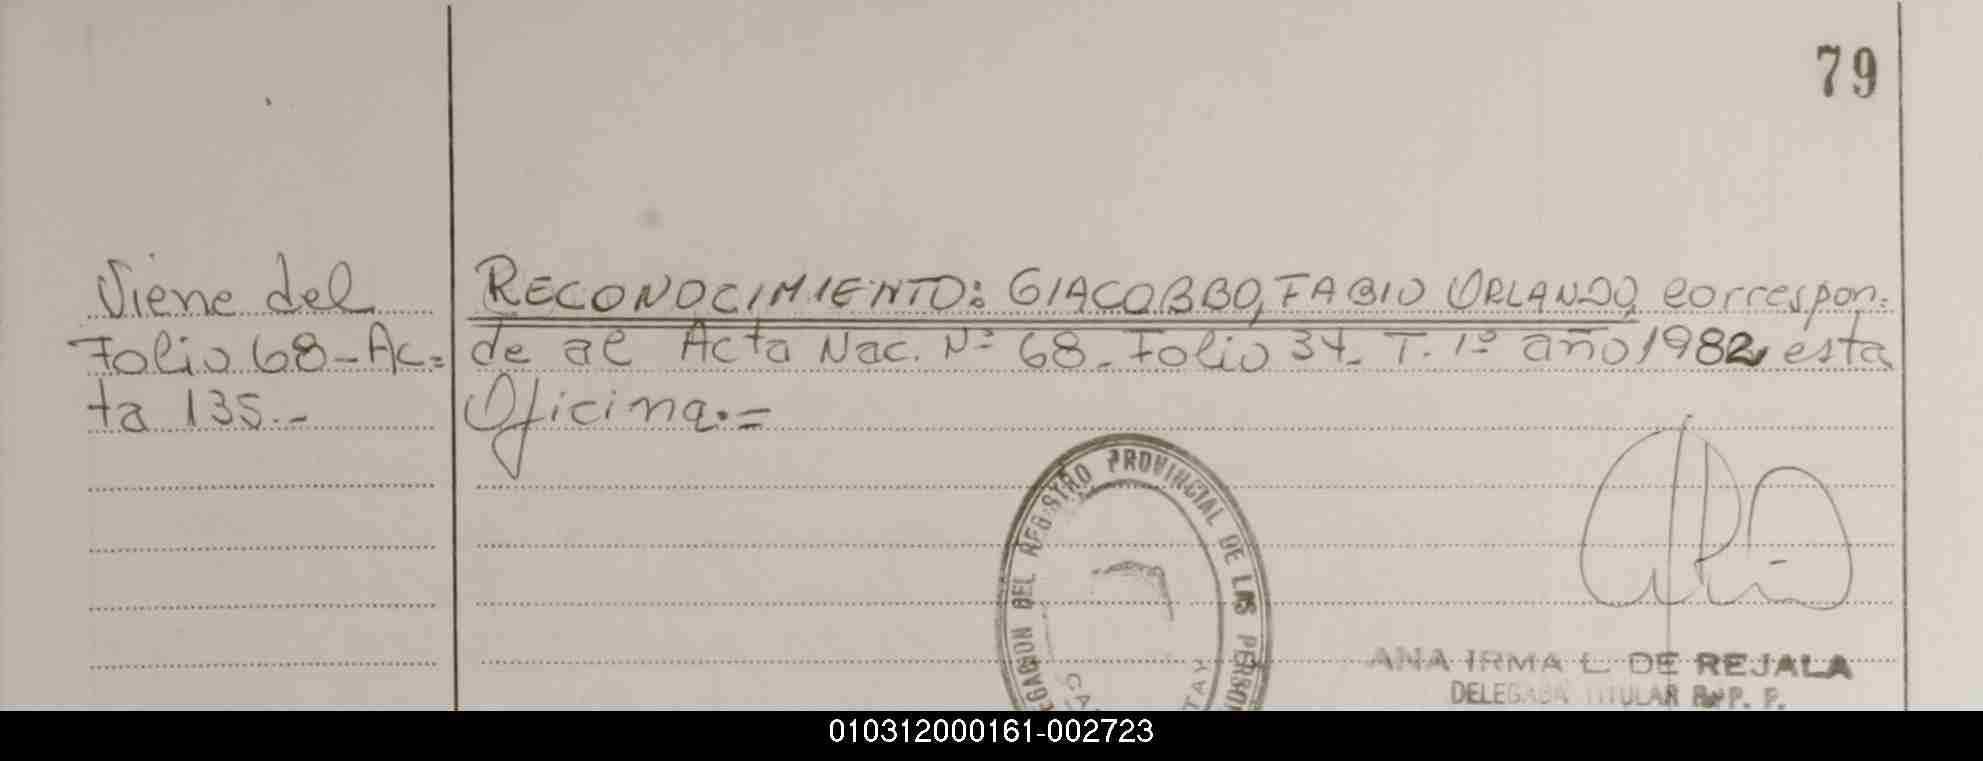 79
Viene del
Folio 68-Ac=
ta 135.-
RECONOCIMIENTO: GIACOBBO, FABIO ORLANDO, correspon=
de al Acta Nac. Nº 68. Folio 34. T. 1º año 1982, esta
Oficina.=
DEL REGISTRO PROVINCIAL DE LAS
ANA IRMA L. DE REJALA
DELEGADA TITULAR R. P. P.
010312000161-002723